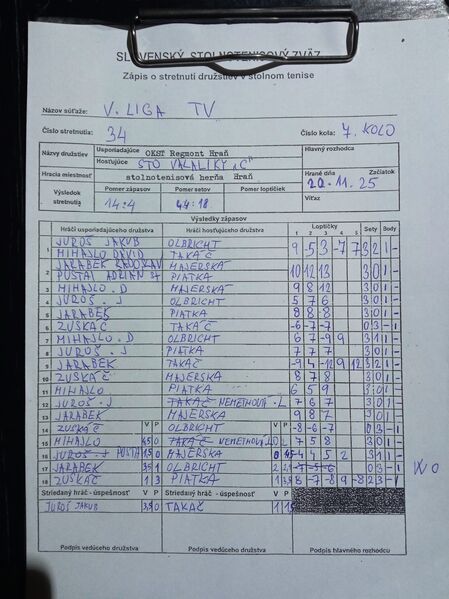 SLOVENSKÝ STOLNOTENISOVÝ ZVÄZ
Zápis o stretnutí družstiev v stolnom tenise
Názov súťaže: V. LIGA TV
Číslo stretnutia: 34 Číslo kola: 7. KOLO
Názvy družstiev Usporiadajúce OKST Regmont Hraň Hlavný rozhodca
Hosťujúce STO VALALIKY "C"
Hracia miestnosť stolnotenisová herňa Hraň Hrané dňa Začiatok
22.11.25
Výsledok stretnutia Pomer zápasov Pomer setov Pomer loptičiek Víťaz
14:4 44:18
Výsledky zápasov
Hráči usporiadajúceho družstva Hráči hosťujúceho družstva Loptičky Sety Body
1 2 3 4 5
1 JUROŠ JAKUB OLBRICHT 9 -5 3 -7 7 3 2 1 -
MIHAJLO DAVID TAKÁČ
2 JARABEK RADOSLAV MAJERSKÁ 10 12 13 3 0 1 -
PUSTAI ADRIAN PIATKA
3 MIHAJLO. D MAJERSKÁ 9 8 12 3 0 1 -
4 JUROŠ. J OLBRICHT 5 7 6 3 0 1 -
5 JARABEK PIATKA 8 8 3 0 1 -
6 ZUSKÁČ TAKÁČ -6 -7 -7 0 3 - 1
7 MIHAJLO. D OLBRICHT 6 7 -9 9 3 1 1 -
8 JUROŠ. J PIATKA 7 7 7 3 0 1 -
9 JARABEK TAKÁČ -9 4 -12 9 12 3 2 1 -
10 ZUSKÁČ MAJERSKÁ 8 7 8 3 0 1 -
11 MIHAJLO PIATKA 6 5 9 3 0 1 -
12 JUROŠ. J TAKÁČ NEMETHOVÁ. L 7 6 7 3 0 1 -
13 JARABEK MAJERSKÁ 9 8 7 3 0 1 -
14 ZUSKÁČ V P OLBRICHT V P -8 -6 -7 0 3 - 1
15 MIHAJLO TAKÁČ NEMETHOVÁ 7 5 8 3 0 1 -
16 JUROŠ. J MAJERSKÁ -4 4 5 2 3 1 1 -
17 JARABEK OLBRICHT -7 -5 -6 0 3 - 1 W O
18 ZUSKÁČ 1 3 PIATKA 8 -7 -8 9 -8 2 3 - 1
Striedaný hráč - úspešnosť V P Striedaný hráč - úspešnosť V P
JUROŠ JAKUB TAKÁČ
Podpis vedúceho družstva Podpis vedúceho družstva Podpis hlavného rozhodcu